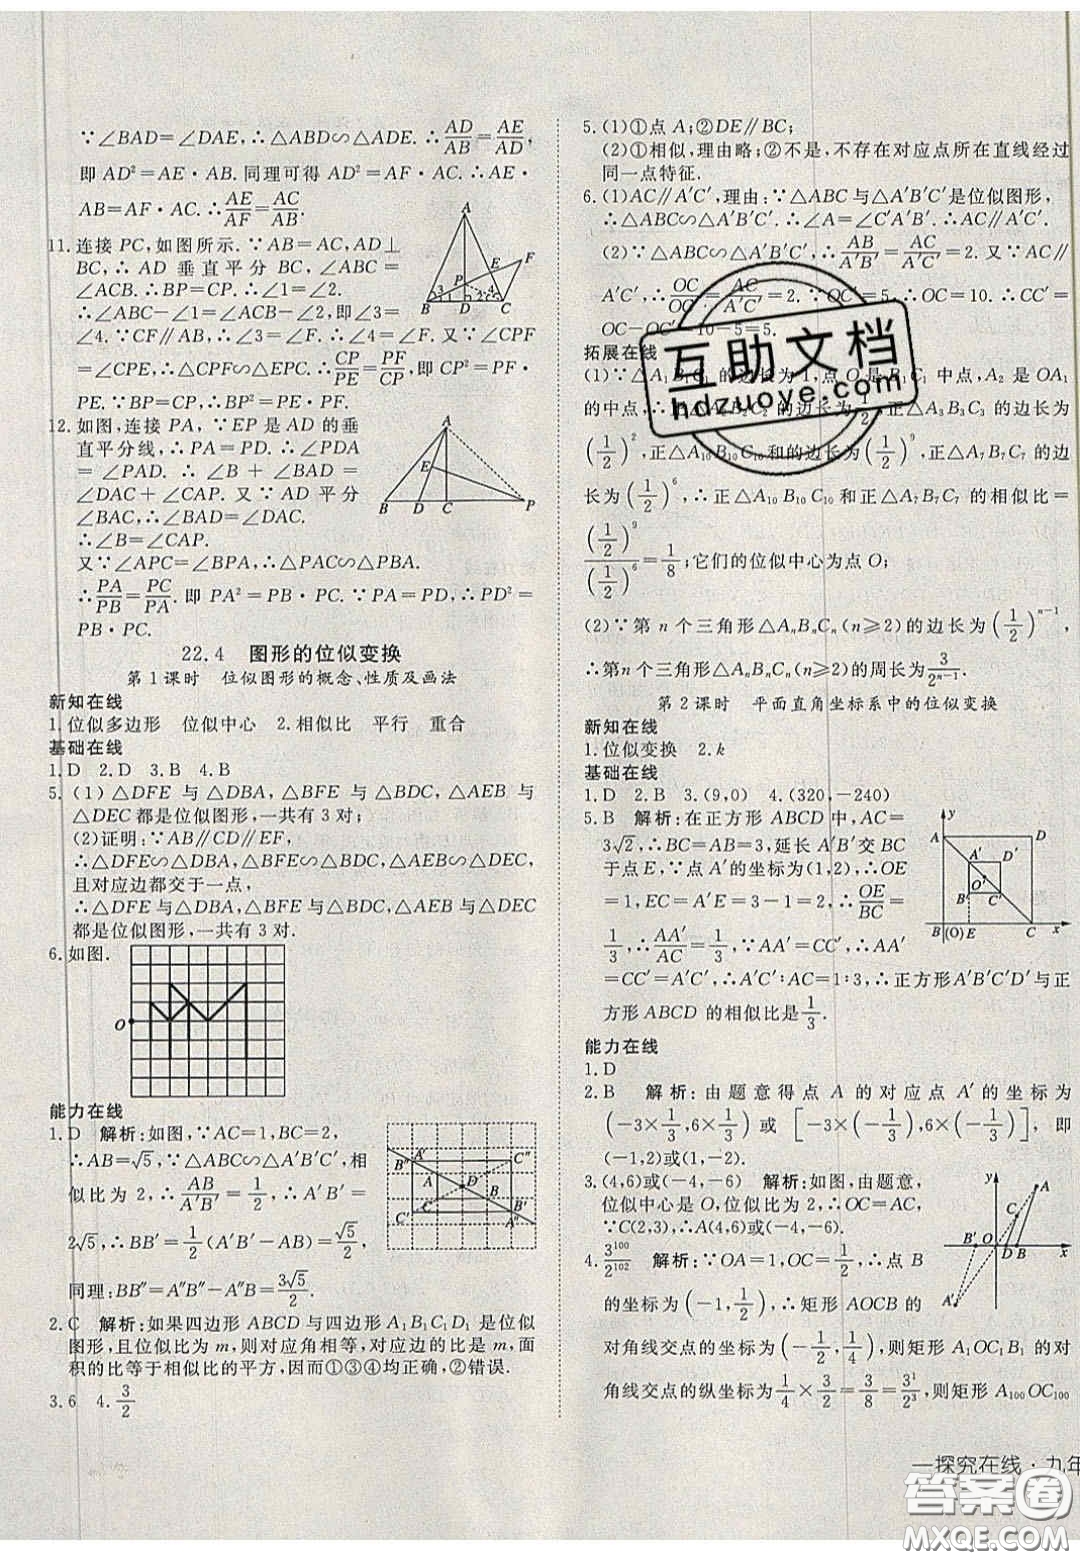 ∵∠BAD=∠DAE,∴△ABD∽△ADE.∴AD/AB=AE/AD,
即 AD²=AE·AB.同理可得 AD²=AF·AC.∴AE·
AB=AF·AC.∴AE/AF=AC/AB.
11.连接 PC,如图所示.∵AB=AC,AD⊥
BC,∴AD 垂直平分 BC,∠ABC=
∠ACB.∴BP=CP.∴∠1=∠2.
∴∠ABC-∠1=∠ACB-∠2,即∠3=
∠4.∵CF∥AB,∴∠3=∠F.∴∠4=∠F.又∵∠CPF
=∠CPE,∴△CPF∽△EPC.∴CP/PE=PF/CP,即 CP²=PF·
PE.∵BP=CP,∴BP²=PE·PF.
12.如图,连接 PA,∵EP 是 AD 的垂
直平分线,∴PA=PD.∴∠PDA
=∠PAD.∴∠B+∠BAD=
∠DAC+∠CAP.又∵AD 平分
∠BAC,∴∠BAD=∠DAC.
∴∠B=∠CAP.
又∵∠APC=∠BPA,∴△PAC∽△PBA.
∴PA/PB=PC/PA.即 PA²=PB·PC.∵PA=PD,∴PD²=
PB·PC.
22.4 图形的位似变换
第1课时 位似图形的概念、性质及画法
新知在线
1.位似多边形 位似中心 2.相似比 平行 重合
基础在线
1.D 2.D 3.B 4.B
5.(1)△DFE 与△DBA,△BFE 与△BDC,△AEB 与
△DEC都是位似图形,一共有3对;
(2)证明:∵AB∥CD∥EF,
∴△DFE∽△DBA,△BFE∽△BDC,△AEB∽△DEC,
且对应边都交于一点,
∴△DFE与△DBA,△BFE与△BDC,△AEB与△DEC
都是位似图形,一共有3对.
6.如图.
O
能力在线
1.D 解析:如图,∵AC=1,BC=2,
∴AB=√5,∵△ABC∽△A′B′C′,相
似比为 2,∴AB/A′B′=1/2,∴A′B′=
2√5,∴BB′=1/2(A′B′-AB)=√5/2.
同理:BB″=A″B″-A″B=3√5/2.
2.C 解析:如果四边形 ABCD 与四边形 A₁B₁C₁D₁ 是位似
图形,且位似比为 m,则对应角相等,对应边的比是 m,面
积的比等于相似比的平方,因而①③④均正确,②错误.
3.6 4.3/2
5.(1)①点 A;②DE∥BC;
(2)①相似,理由略;②不是,不存在对应点所在直线经过
同一点特征.
6.(1)AC∥A′C′,理由:∵△ABC与△A′B′C′是位似图形,
∴△ABC∽△A′B′C′.∴∠A=∠C′A′B′.∴AC∥A′C′.
(2)∵△ABC∽△A′B′C′,∴AB/A′B′=AC/A′C′=2.又∵AC∥
A′C′,∴OC/OC′=AC/A′C′=2.∵OC′=5,∴OC=10.∴CC′=
OC-OC′=10-5=5.
拓展在线
(1)∵△A₁B₁C₁的边长为1,点 O 是 B₁C₁ 中点,A₂ 是 OA₁
的中点,∴正△A₂B₂C₂的边长为1/2,正△A₃B₃C₃的边长为
(1/2)²,正△A₁₀B₁₀C₁₀和的边长为(1/2)⁹,正△A₇B₇C₇的边
长为(1/2)⁶,∴正△A₁₀B₁₀C₁₀和正△A₇B₇C₇的相似比=
(1/2)⁹/(1/2)⁶=1/8;它们的位似中心为点 O;
(2)∵第 n 个三角形△AₙBₙCₙ(n≥2)的边长为(1/2)ⁿ⁻¹,
∴第 n 个三角形△AₙBₙCₙ(n≥2)的周长为3/2ⁿ⁻¹.
第2课时 平面直角坐标系中的位似变换
新知在线
1.位似变换 2.k
基础在线
1.D 2.B 3.(9,0) 4.(320,-240)
5.B 解析:在正方形 ABCD 中,AC=
3√2,∴BC=AB=3,延长 A′B′交 BC
于点 E,∵点 A′的坐标为(1,2),∴OE
=1,EC=A′E=3-1=2,∴OE/BC=
1/3,∴AA′/AC=1/3,∵AA′=CC′,∴AA′
=CC′=A′C′,∴A′C′:AC=1:3,∴正方形A′B′C′D′与正
方形 ABCD 的相似比是1/3.
能力在线
1.D
2.B 解析:由题意得点 A 的对应点 A′的坐标为
(-3×1/3,6×1/3)或[-3×(-1/3),6×(-1/3)],即
(-1,2)或(1,-2).
3.(4,6)或(-4,-6) 解析:如图,由题意,
位似中心是O,位似比为2,∴OC=AC,
∵C(2,3),∴A(4,6)或(-4,-6).
4.3¹⁰⁰/2¹⁰² 解析:∵OA=1,OC=1/2,∴点 B
的坐标为(-1,1/2),∴矩形 AOCB 的
对角线交点的坐标为(-1/2,1/4),则矩形 A₁OC₁B₁ 的对
角线交点的纵坐标为1/4×3/2=3/8=3¹/2³,则矩形 A₁₀₀OC₁₀₀
一探究在线·九年
互助文档
hdzuoye.com
答案圈
MXQE.COM